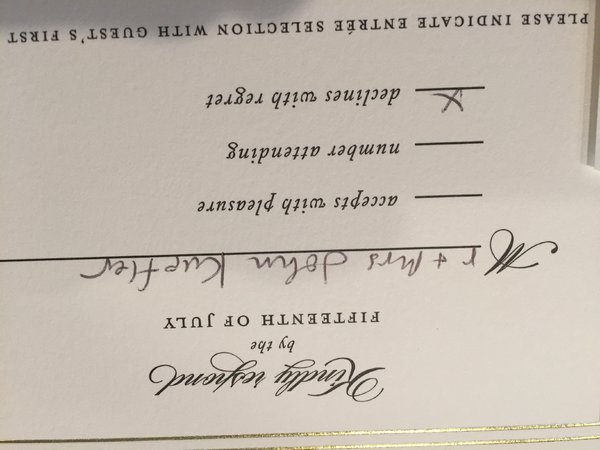 Kindly respond
by the
FIFTEENTH OF JULY
Mr + Mrs John Kuefler
accepts with pleasure
number attending
X declines with regret
PLEASE INDICATE ENTRÉE SELECTION WITH GUEST'S FIRST